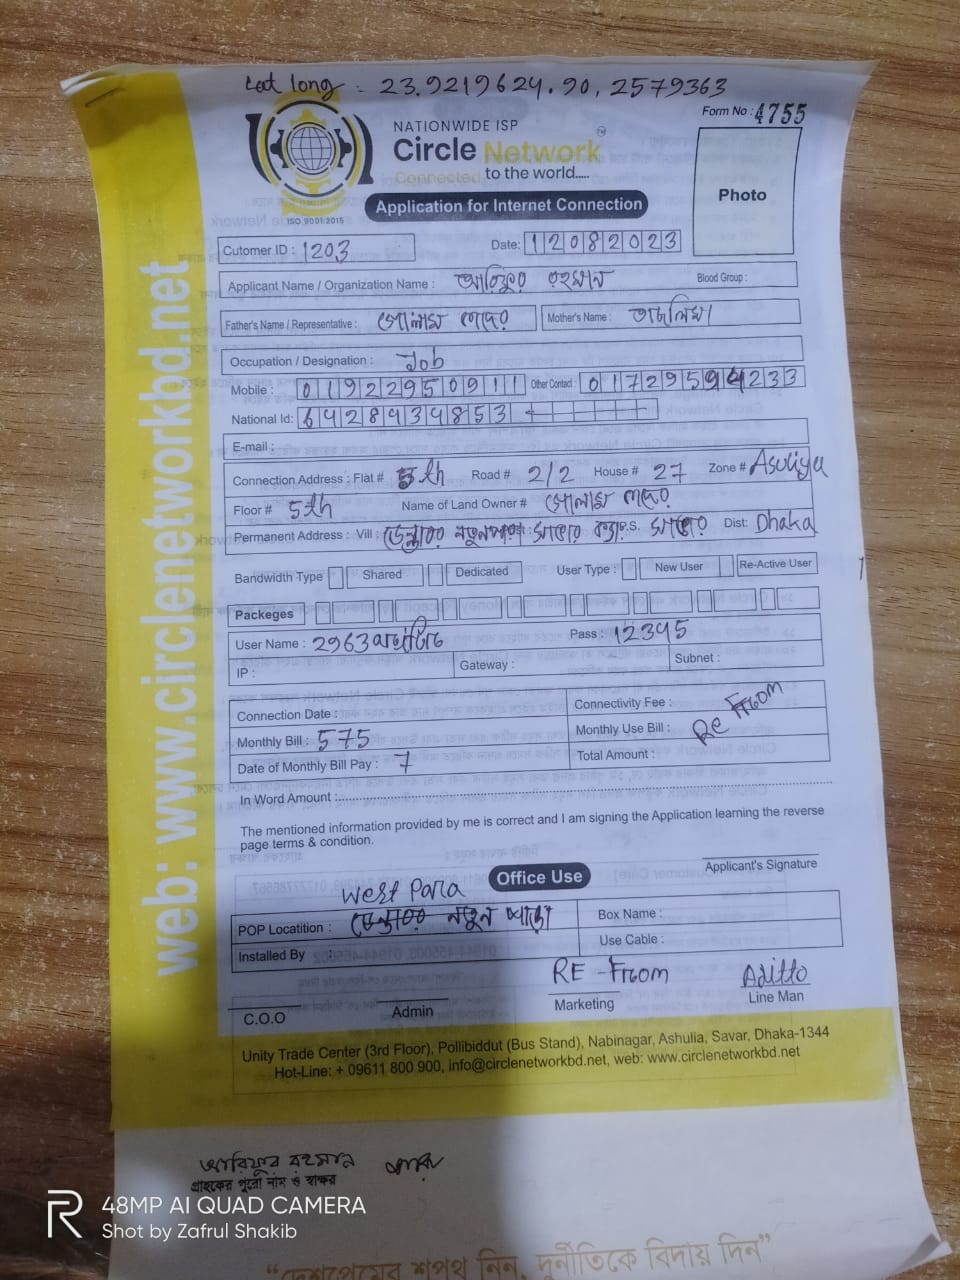 Lat long : 23.9219624.90, 2579363
Form No : 4755
NATIONWIDE ISP
Circle Network TM
Connected to the world.....
ISO 9001:2015
Application for Internet Connection
Photo
Cutomer ID : 1203
Date: 12082023
Applicant Name / Organization Name : আরিফুর রহমান Blood Group :
Father's Name / Representative : গোলাম
Mother's Name : তাছলিমা
Occupation / Designation : Job
Mobile : 01922950911 Other Contact : 01729594233
National Id: 6428934853
E-mail :
Connection Address : Flat # 5th Road # 2/2 House # 27 Zone # Asuliya
Floor # 5th Name of Land Owner # গোলাম
Permanent Address : Vill : নতুনপাড়া P.S. Dist: Dhaka
Bandwidth Type Shared Dedicated User Type : New User Re-Active User
Packeges
User Name : 2963 Pass : 12345
IP : Gateway : Subnet :
Connection Date : Connectivity Fee :
Monthly Bill : 575 Monthly Use Bill : Re From
Date of Monthly Bill Pay : 7 Total Amount :
In Word Amount :
The mentioned information provided by me is correct and I am signing the Application learning the reverse
page terms & condition.
Applicant's Signature
Office Use
West Para
POP Locatition : নতুন পাড়া Box Name :
Installed By : Use Cable :
RE - From Aditto
C.O.O Admin Marketing Line Man
Unity Trade Center (3rd Floor), Pollibiddut (Bus Stand), Nabinagar, Ashulia, Savar, Dhaka-1344
Hot-Line: + 09611 800 900, info@circlenetworkbd.net, web: www.circlenetworkbd.net
web: www.circlenetworkbd.net
আরিফুর রহমান
গ্রাহকের পুরো নাম ও স্বাক্ষর
48MP AI QUAD CAMERA
Shot by Zafrul Shakib
“দেশপ্রেমের শপথ নিন, দুর্নীতিকে বিদায় দিন”